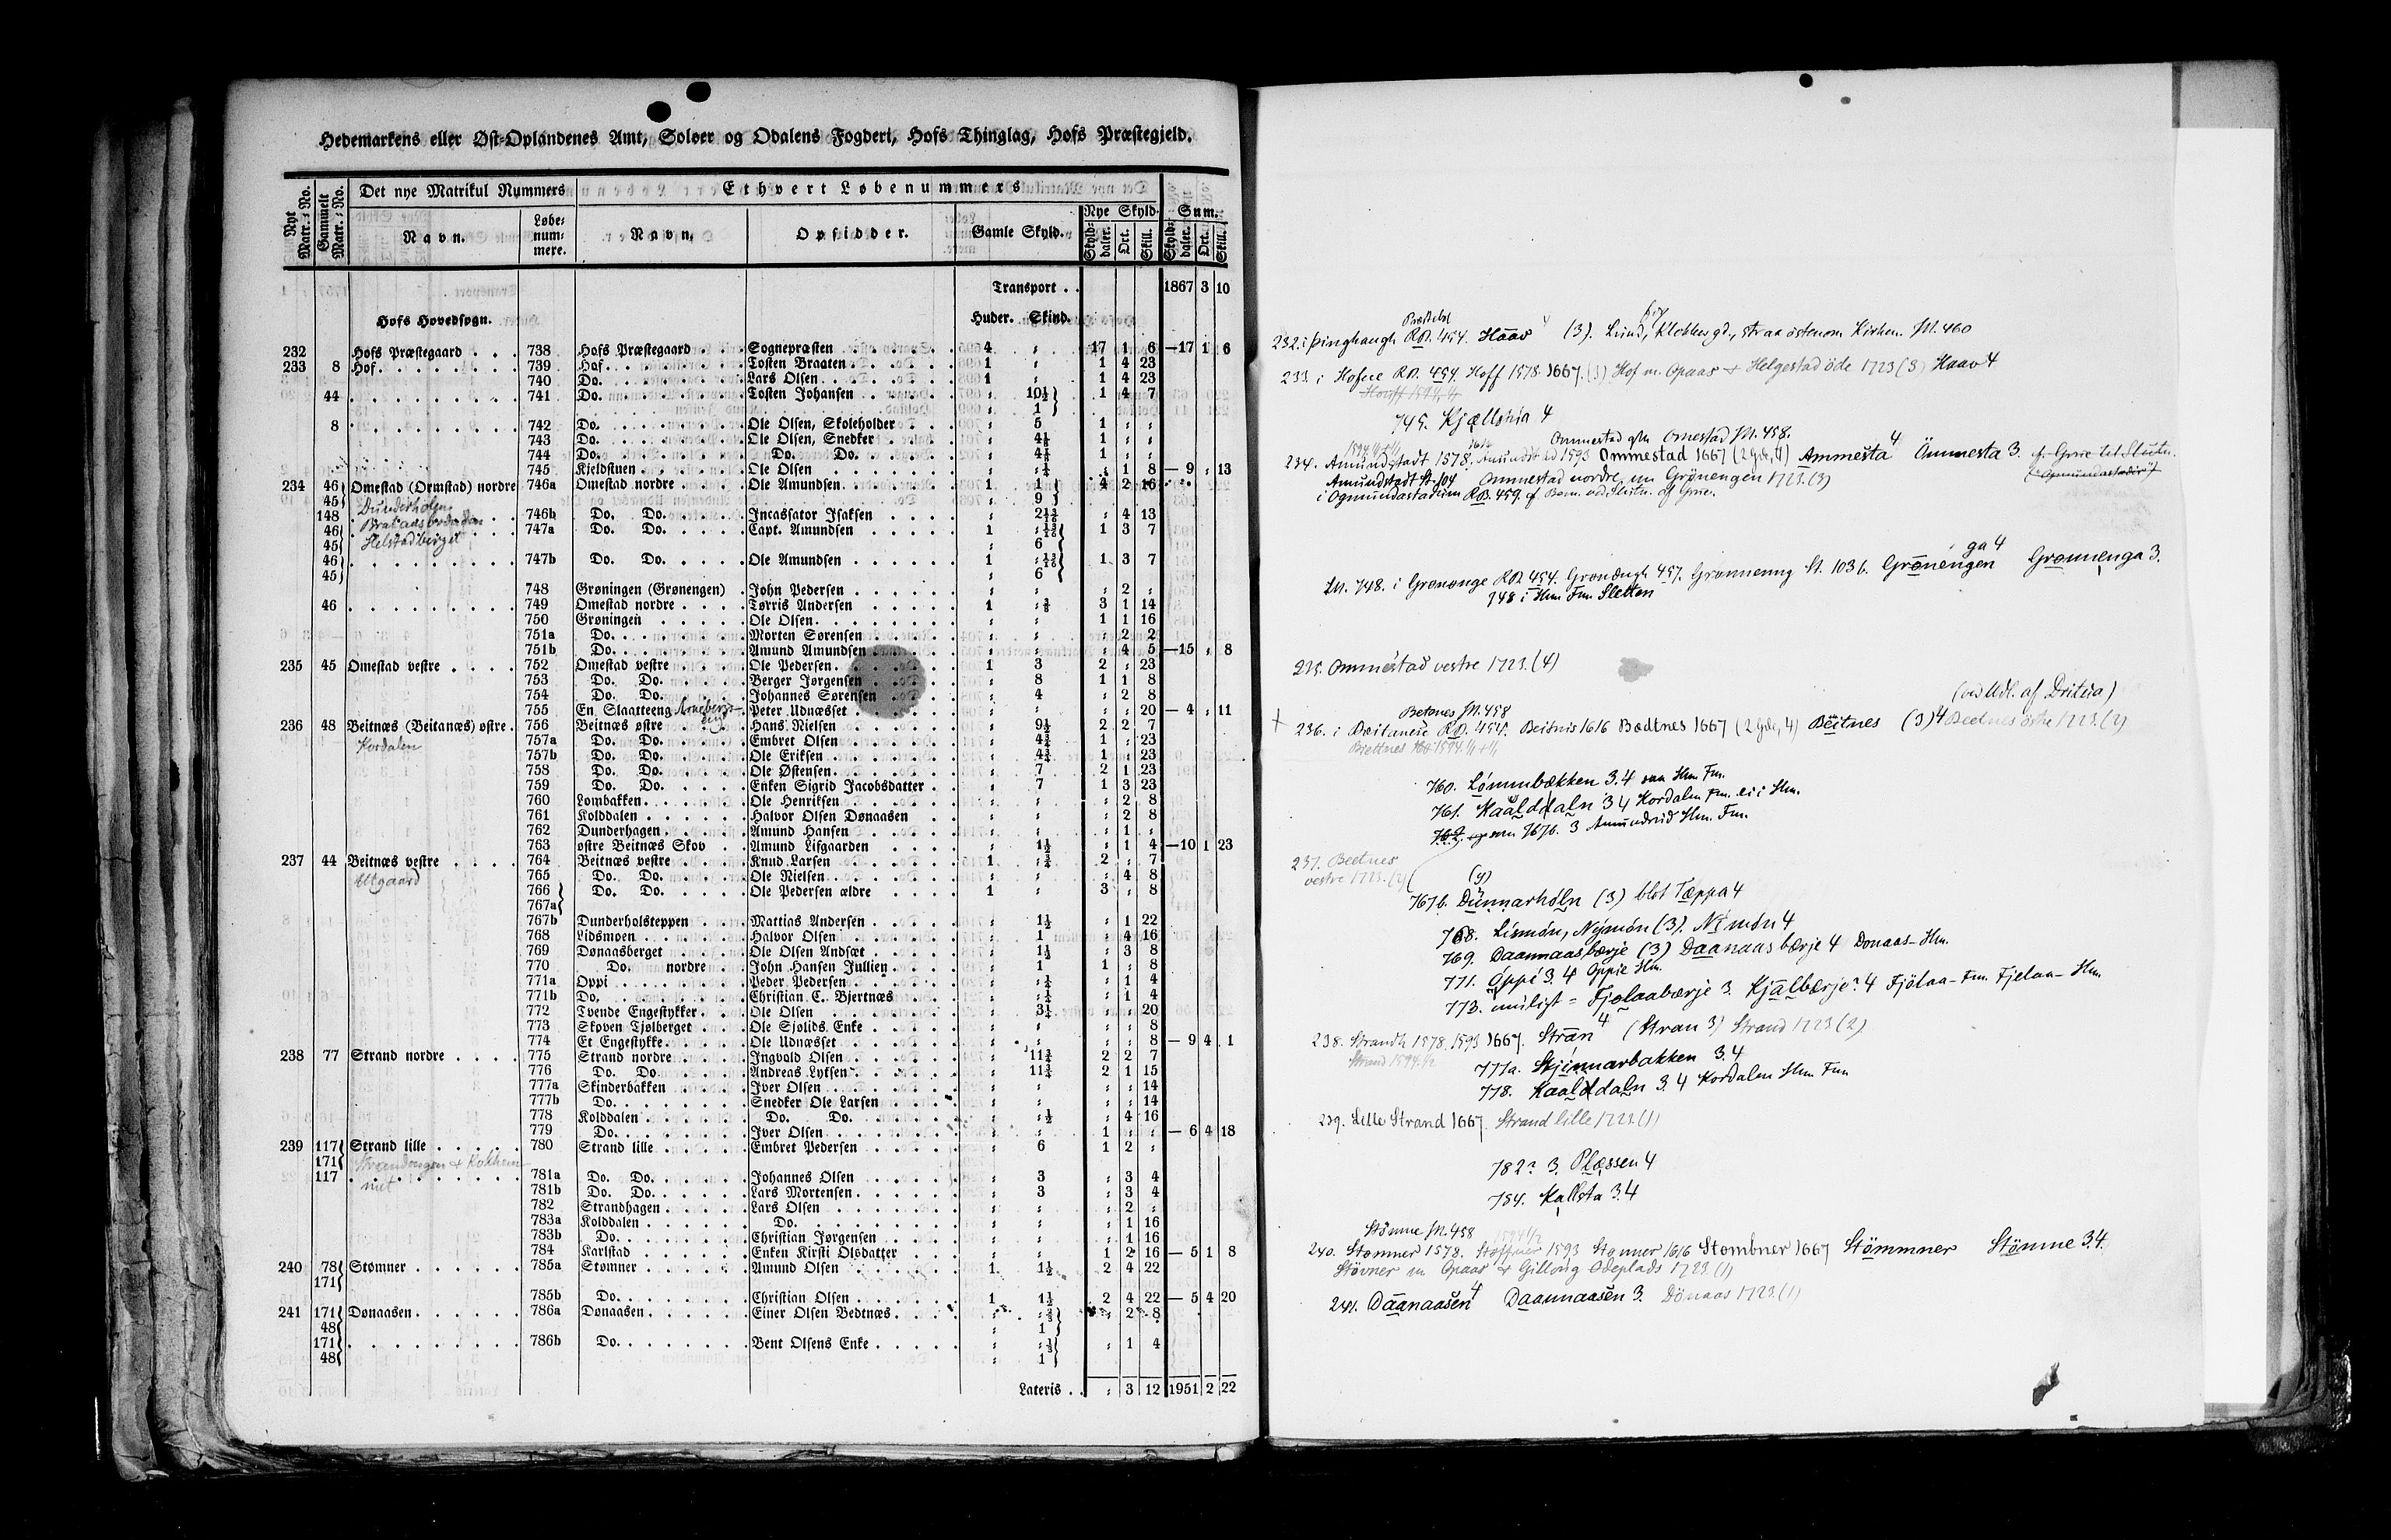 Hedemarkens eller Øst-Oplandenes Amt, Soløer og Odalens Fogderi, Hofs Thinglag, Hofs Præstegjeld.
Nyt Matr.-No. Gammelt Matr.-No. Det nye Matrikul Nummers Ethvert Løbenummers
Navn. Løbe-nummere. Navn. Opsidder. Gamle Skyld. Nye Skyld. Skylddaler. Ort. Skill. Sum. Skylddaler. Ort. Skill.
Transport . . 1867 3 10
Hofs Hovedsogn. Huder. Skind.
232 Hofs Præstegaard . . . 738 Hofs Præstegaard . . . Sognepræsten 4 " 17 1 6 —17 1 6
233 8 Hof. 739 Hof. Tosten Braaten 1 " 1 4 23
740 Do. Lars Olsen 1 " 1 4 23
44 741 Do. Tosten Johansen " 10½ 1 4 7
" 1
8 742 Do. Ole Olsen, Skoleholder " 5 1 " "
743 Do. Ole Olsen, Snedker " 4⅛ 1 " "
744 Do. Do. Do. " 4⅛ 1 " "
745 Kjeldstuen Ole Olsen " "¼ " 1 8 — 9 " 13
234 46 Omestad (Ormstad) nordre 746a Omestad nordre Ole Amundsen 1 1 4 2 16
45 Dunderholen " 9
148 746b Do. Do. Incassator Isaksen " 4 13
46 747a Do. Do. Capt. Amundsen 1 1 3 7
45 Helstadberget " 6
46 747b Do. Do. Ole Amundsen 1 1 3 7
45 " 6
748 Grøningen (Grønengen) John Pedersen " " " 2 "
46 749 Omestad nordre Tørris Andersen 1 3 1 14
750 Grøningen Ole Olsen " " 1 1 16
751a Do. Morten Sørensen " " " 2 2
751b Do. Amund Amundsen " " " 4 5 —15 " 8
235 45 Omestad vestre 752 Omestad vestre Ole Pedersen 1 3 2 " 23
753 Do. Do. Berger Jørgensen " 8 1 1 8
754 Do. Do. Johannes Sørensen " 4 " 2 8
755 En Slaatteeng Arnebergseng Peter Udnæsset " " " " 20 — 4 " 11
236 48 Beitnæs (Beitanæs) østre 756 Beitnæs østre Hans Nielsen " 9½ 2 2 7
Kordalen 757a Do. Do. Embret Olsen " 4¾ 1 " 23
757b Do. Do. Ole Eriksen " 4¾ 1 " 23
758 Do. Do. Ole Østensen " 7 2 1 23
759 Do. Do. Enken Sigrid Jacobsdatter " 7 1 3 23
760 Lombakken Ole Henriksen " " " 2 8
761 Kolddalen Halvor Olsen Dønaasen " " " 2 8
762 Dunderhagen Amund Hansen " " " 1 "
763 østre Beitnæs Skov Amund Lifgaarden " 1½ " 1 4 —10 1 23
237 44 Beitnæs vestre 764 Beitnæs vestre Knud Larsen 1 "¾ 2 " 7
Utgaard 765 Do. Do. Ole Nielsen " " " 4 8
766 Do. Do. Ole Pedersen ældre 1 " 3 " 8
767a
767b Dunderholsteppen Mattias Andersen " 1½ " 1 22
768 Lidsmoen Halvor Olsen " 1 " 4 16
769 Dønaasberget Ole Olsen Andsæt " 1½ " 3 8
770 Do. nordre John Hansen Jullien " 1 1 " 8
771a Oppi Peder Pedersen " "½ " 1 4
771b Do. Christian C. Bjertnæs " "½ " 1 4
772 Tvende Engestykker Ole Olsen " 3¼ " " 20
773 Skoven Tjølberget Ole Sjolids Enke " " " " 8
774 Et Engestykke Ole Udnæsset " " " " 8 — 9 4 1
238 77 Strand nordre 775 Strand nordre Ingvald Olsen " 11¾ 2 2 7
776 Do. Do. Andreas Lyksen " 11¾ 2 1 15
777a Skinderbakken Iver Olsen " " " " 14
777b Do. Snedker Ole Larsen " " " " 14
778 Kolddalen Do. Do. " "½ " 4 16
779 Do. Iver Olsen " " 1 " " — 6 4 18
239 117 Strand lille 780 Strand lille Embret Pedersen " 6 1 2 "
171 Strandengen +
117 781a Do. Do. Johannes Olsen " 3 " 3 4
781b Do. Do. Lars Mortensen " 3 " 3 4
782 Strandhagen Lars Olsen " " " 2 "
783a Kolddalen Do. " " " 1 16
783b Do. Christian Jørgensen " " " 1 16
784 Karlstad Enken Kirsti Olsdatter " " 1 2 16 — 5 1 8
240 78 Stomner 785a Stomner Amund Olsen 1 1½ 2 4 22
171
785b Do. Christian Olsen 1 1½ 2 4 22 — 5 4 20
241 171 Dønaasen 786a Dønaasen Einer Olsen Bedtnæs " " 2 8
48 " 1
171 786b Do. Bent Olsens Enke " " 1 4
48 " 1
Lateris . . " 3 12 1951 2 22
232. i Þinghaugh RB. 454. Haav (3). Lund, Klokkergd., straa østenom Kirken. JN. 460
233. i Hofue RB. 454. Hoff 1578. 1667. (3) Hof m. Opaas + Helgestad öde 1723 (3) Haav 4
745. Kjællstua 4
Ommestad Omestad JN. 458.
234. Amundstadt 1578. 1593 Ommestad 1667 (2 Gde, 4) Ammesta 4 Ommesta 3.
Amundstadt St. 104 Ommestad nordre m Grønengen 1723. (3)
i Ogmundastadum RB. 459.
LN. 748. i Grononge RB. 454. 457. Grønnenng St. 103 b. Grønengen ga 4 Grønnenga 3.
748 i Hm. Fm. Sletten
235. Ommestad vestre 1723. (4)
Betenes JN. 458 (ved Udl. af Dritua)
236. i Bæitanese RB. 454. Beidnis 1616 Bædtnes 1667 (2 Gde, 4) Beitnes (3) 4 Beetnes østre 1723. (2)
760. Lommbækken 3. 4 saa Hm. Fm.
761. Kaalddaln 3 4 Kordalen Fm. ei i Hm.
som 767b. 3 Amundrud Hm. Fm.
237. Beetnes
vestre 1723.
767b. Dunnarholn (3) blot Tæppa 4
768. Limon, Nymon (3). Nimon 4
769. Daannaasbærje (3) Daanaasbærje 4 Donaas- Hm.
771. Oppi 3. 4 Oppie Hm.
773. muligt = Fjølaabærje 3. Kjalbærje? 4 Fjölaa- Fm. Fjelaa- Hm.
238. Strandh 1578. 1593 1667. Stran 4 (Stran 3) Strand 1723 (2)
Strand 1594. 1/2
777a. Skjinnarbakken 3. 4
778. Kaalddaln 3. 4 Kordalen Hm. Fm
239. Lille Strand 1667. Strand lille 1723. (1)
782? 3. Plæssen 4
784. Kallsta 3. 4
Stomne JN. 458 1594 1/2
240. Stomner 1578. 1593 Stomner 1616 Stombner 1667 Stömmner Stömne 3. 4.
Stövner m Opaas + Gillong Ødeplads 1723. (1)
241. Daanaasen 4 Daannaasen 3. Dönaas 1723. (1)